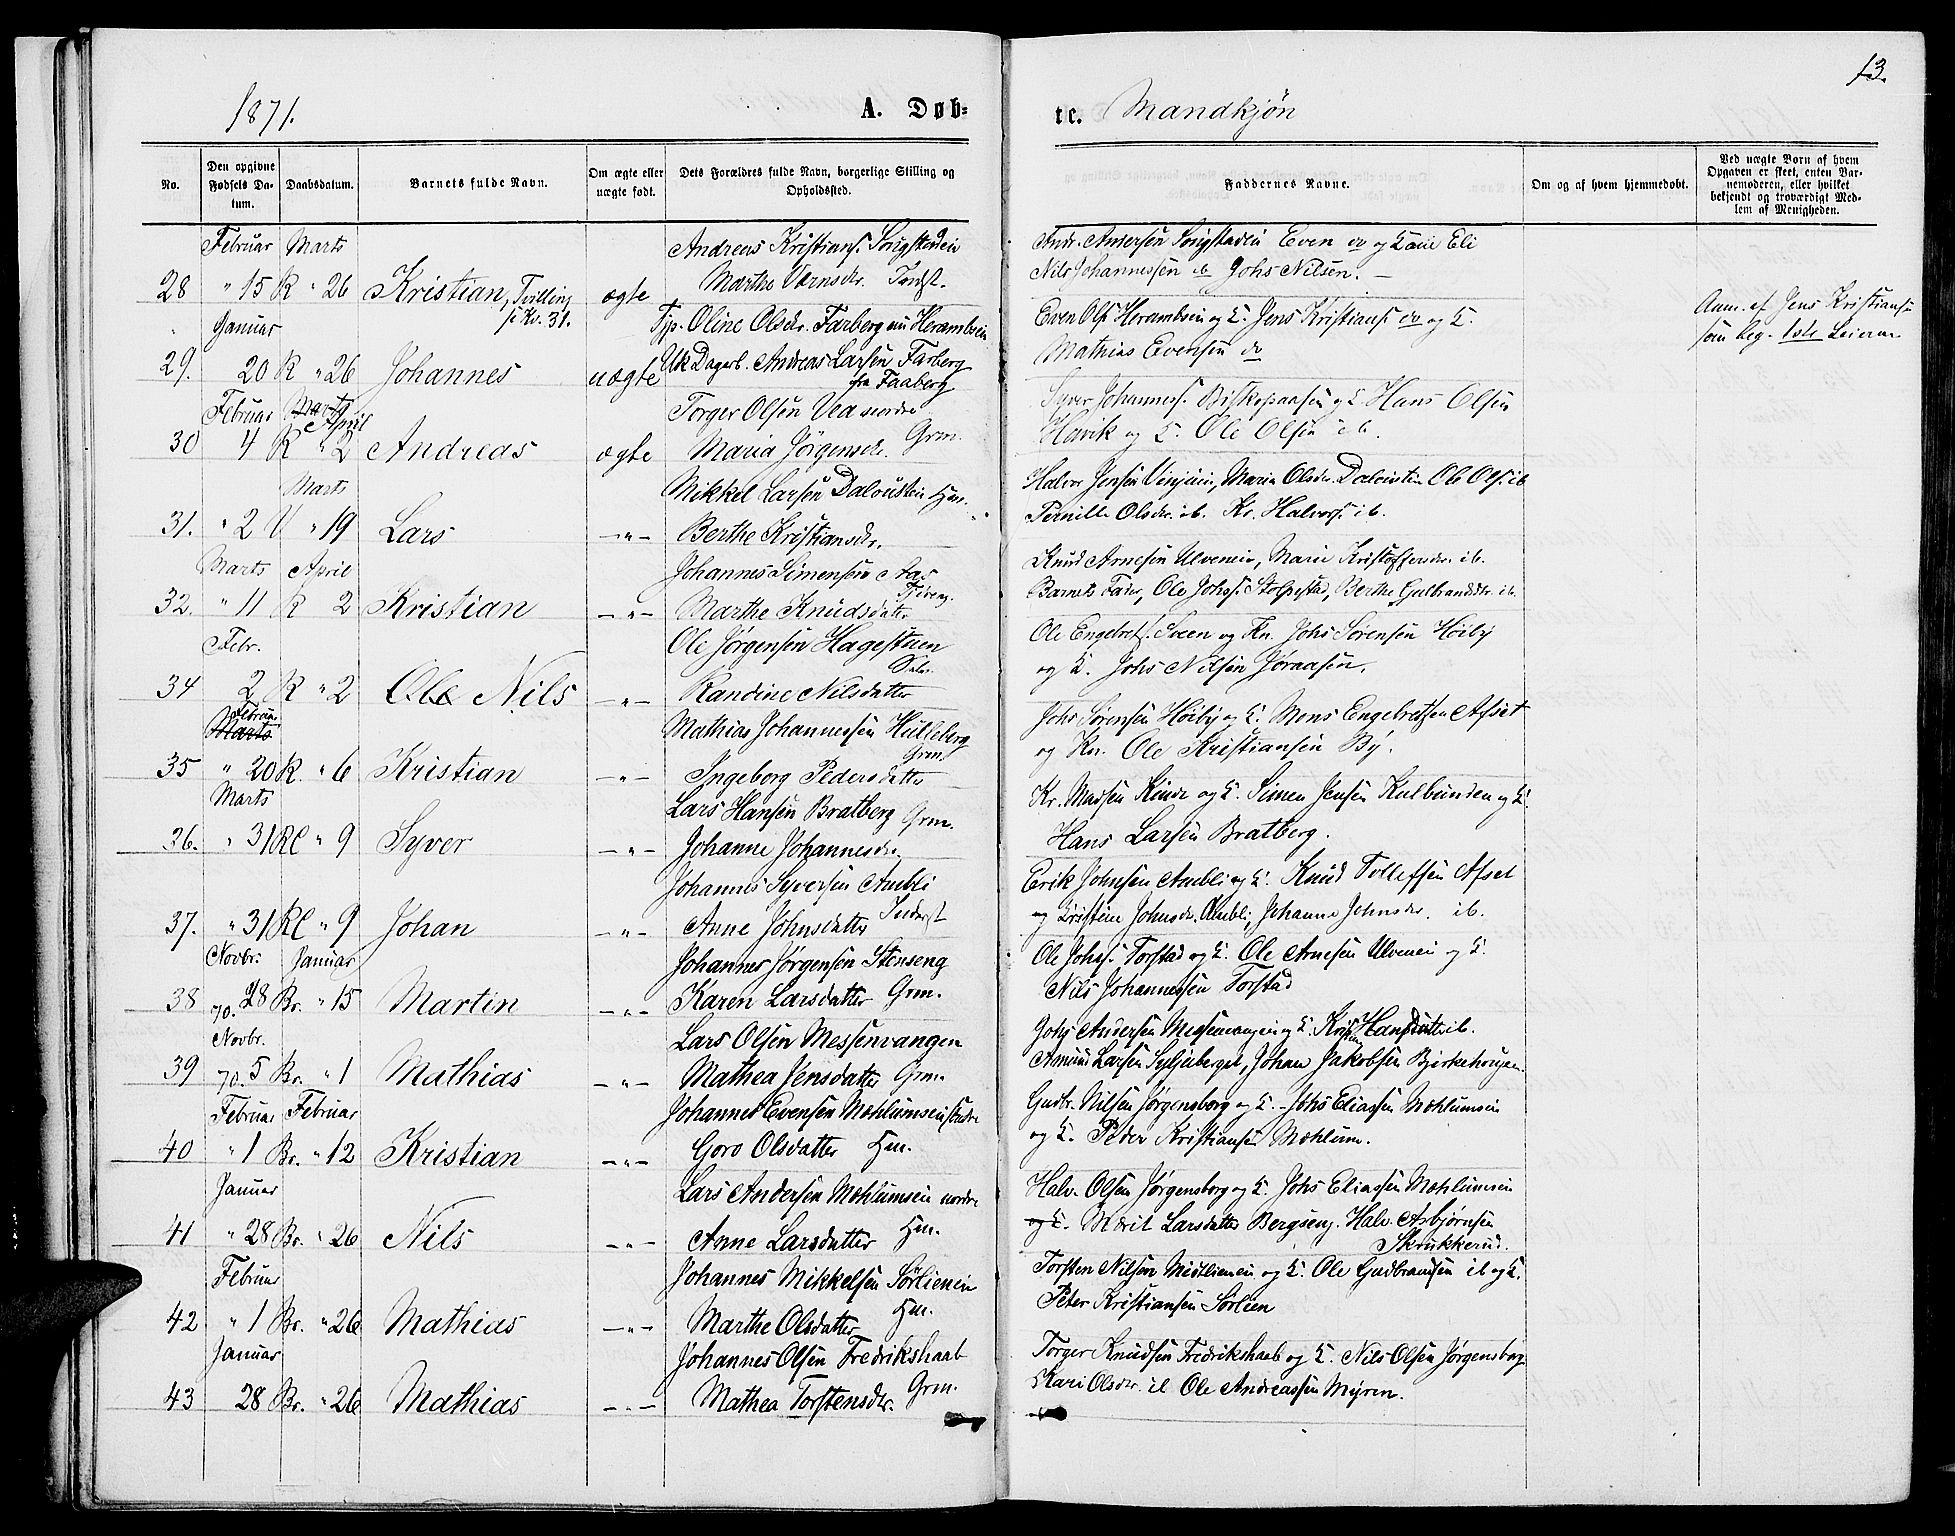 13.
1871.
A. Døb-
te. Mandkjøn
No.
Den opgivne Fødsels Datum.
Daabsdatum.
Barnets fulde Navn.
Om ægte eller uægte født.
Dets Forældres fulde Navn, borgerlige Stilling og Opholdssted.
Faddernes Navne.
Om og af hvem hjemmedøbt.
Ved uægte Børn af hvem Opgaven er skeet, enten Barnemoderen, eller hvilket bekjendt og troværdigt Medlem af Menigheden.
Februar Marts Andreas Kristians.
28 " 15 R " 26 Kristian, Tvilling ægte Marthe
Nils Johannessen ib Johs Nilsen. —
Januar Oline Olsdr. Farberg
Even Ols. og K. Jens Kristians. do og K.
29. 20 R " 26 Johannes uægte Andreas Larsen Farberg
fra Faaberg
Mathias Evensen do
Anm. af Jens Kristians.
Februar Marts April Torger Olsen nordre
Johannes. og K. Hans Olsen
30 4 R " 2 Andreas ægte Maria Jörgensdr. Grm.
og K. Ole Olsen ib.
Marts Mikkel Larsen Hm.
Halvor Jensen Marie Olsdr. Ole Ols. ib
31. " 2 V " 19 Lars —"— Berthe Kristiansdr.
Pernille Olsdr. ib. Kr. Halvors. ib.
Marts April Johannes Simensen Aas
Knud Arnesen Ulvenein, Marie Kristoffersdr. ib.
32. " 11 R 2 Kristian —"— Marthe Knudsdatr.
Barnets Fader, Ole Johs. Stolpestad, Berthe Gulbrandsdr. ib.
Febr. Ole Jørgensen Hagestuen
Ole Engebrets. Sveen og Kn. Johs Sørensen Høiby
34 2 R " 2 Ole Nils —"— Randine Nilsdatter
og K. Johs Nilsen
Februar Marts Mathias Johannessen Hulleberg
Johs Sørensen Høiby og K. Mons Engebretsen Afset
35 " 20 R. " 6 Kristian —"— Ingeborg Pedersdatter Grm.
og Kn. Ole Kristiansen By.
Marts Lars Hansen Bratberg Grm.
Kr. Madsen og K. Simen Jensen Kulbunden og K.
36. " 31 Rl " 9 Syver —"— Johanne Johannesdr.
Hans Larsen Bratberg.
Johannes Syversen Ambli
Erik Johnsen Ambli og K. Knud Tollefsen Afset
37. " 31 Rl " 9 Johan —"— Anne Johnsdatter Inderst
og Kristine Johnsdr. Ambli, Johanne Johnsdr. ib.
Novbr. Januar Johannes Jørgensen Stenseng
Ole Johs. Torstad og K. Ole Arnesen Ulvenei og K.
38 70. 28 Br. " 15 Martin —"— Karen Larsdatter Grm.
Nils Johannessen Torstad
Novbr. Lars Olsen Messenvangen
Johs Andersen Messenvangen og K. Hansdatter ib.
39 70. 5 Br. " 1 Mathias —"— Mathea Jensdatter Grm.
Amund Larsen Syljuberget, Johan Jakobsen Bjerkehougen
Februar Februar Johannes Evensen Mæhlumsein søndre
Gudbr. Nilsen Jørgensborg og K. - Johs Eliassen Mæhlumsein
40 " 1 Br. " 12 Kristian —"— Goro Olsdatter Hm.
og K. Peder Kristiansen Mæhlum.
Januar Lars Andersen Mæhlumsein nordre
Halv. Olsen Jørgensborg og K. Johs Eliassen Mæhlumsein
41 " 28 Br. " 26 Nils —"— Anne Larsdatter Hm.
og K. Marit Larsdatter Bergseng. Halv. Asbjørnsen
Skrukkerud.
Februar Johannes Mikkelsen Sørlienein
Torsten Nilsen Midtlienein og K. Ole Gudbrandsen ib og K.
42 " 1 Br. " 26 Mathias —"— Marthe Olsdatter Hm.
Peter Kristiansen Sørlien
Januar Johannes Olsen Fredrikshaab
Torger Knudsen Fredrikshaab og K. Nils Olsen Jørgensborg
43 28 Br. " 26 Mathias —"— Mathea Torstensdr. Grm.
Kari Olsdr. ib Ole Andreassen Myren.